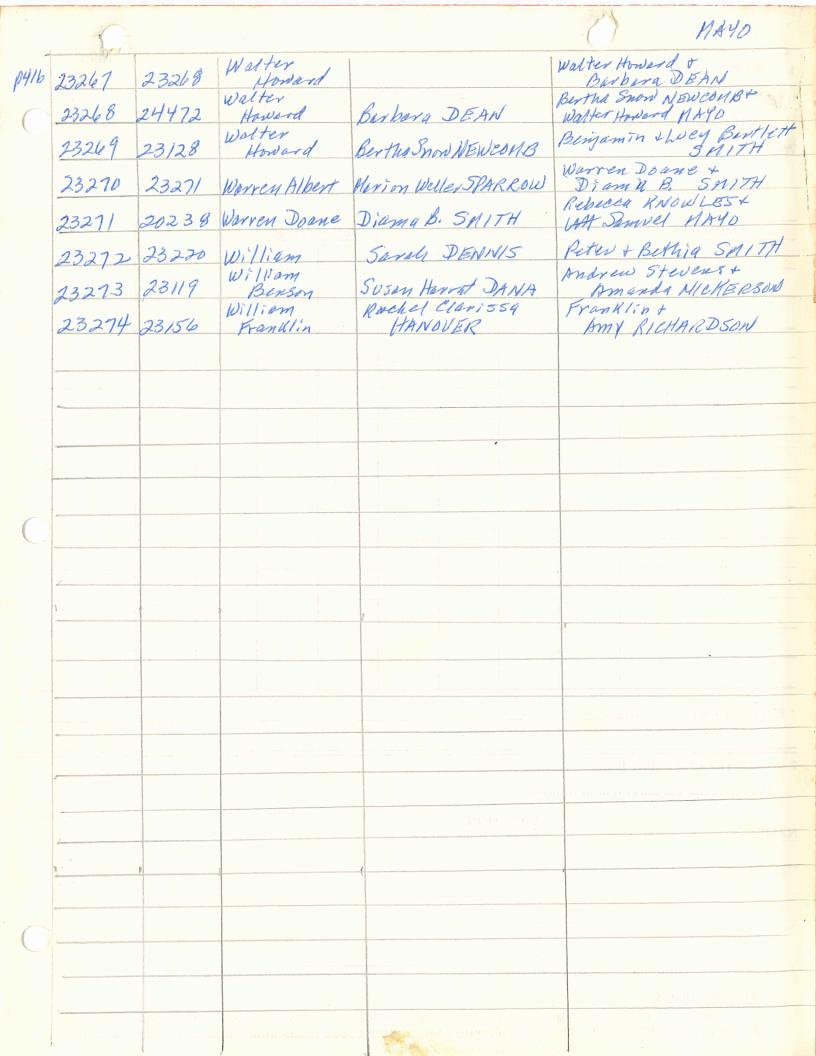 MAYO
p416 23267 23268 Walter Howard Walter Howard & Barbara DEAN
23268 24472 Walter Howard Barbara DEAN Bertha Snow NEWCOMB & Walter Howard MAYO
23269 23128 Walter Howard Bertha Snow NEWCOMB Benjamin & Lucy Bartlett SMITH
23270 23271 Warren Albert Marion Weller SPARROW Warren Doane & Diama B. SMITH
23271 20238 Warren Doane Diama B. SMITH Rebecca KNOWLES & Samuel MAYO
23272 23220 William Sarah DENNIS Peter & Bethia SMITH
23273 23119 William Benson Susan DANA Andrew Stevens & Amanda NICKERSON
23274 23156 William Franklin Rachel Clarissa HANOVER Franklin & Amy RICHARDSON